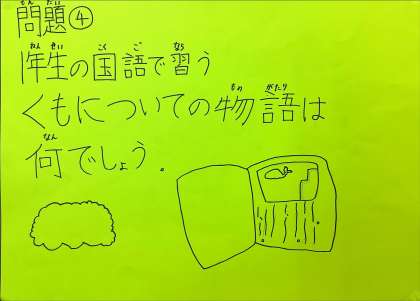 問題④
1年生の国語で習う
くもについての物語は
何でしょう。